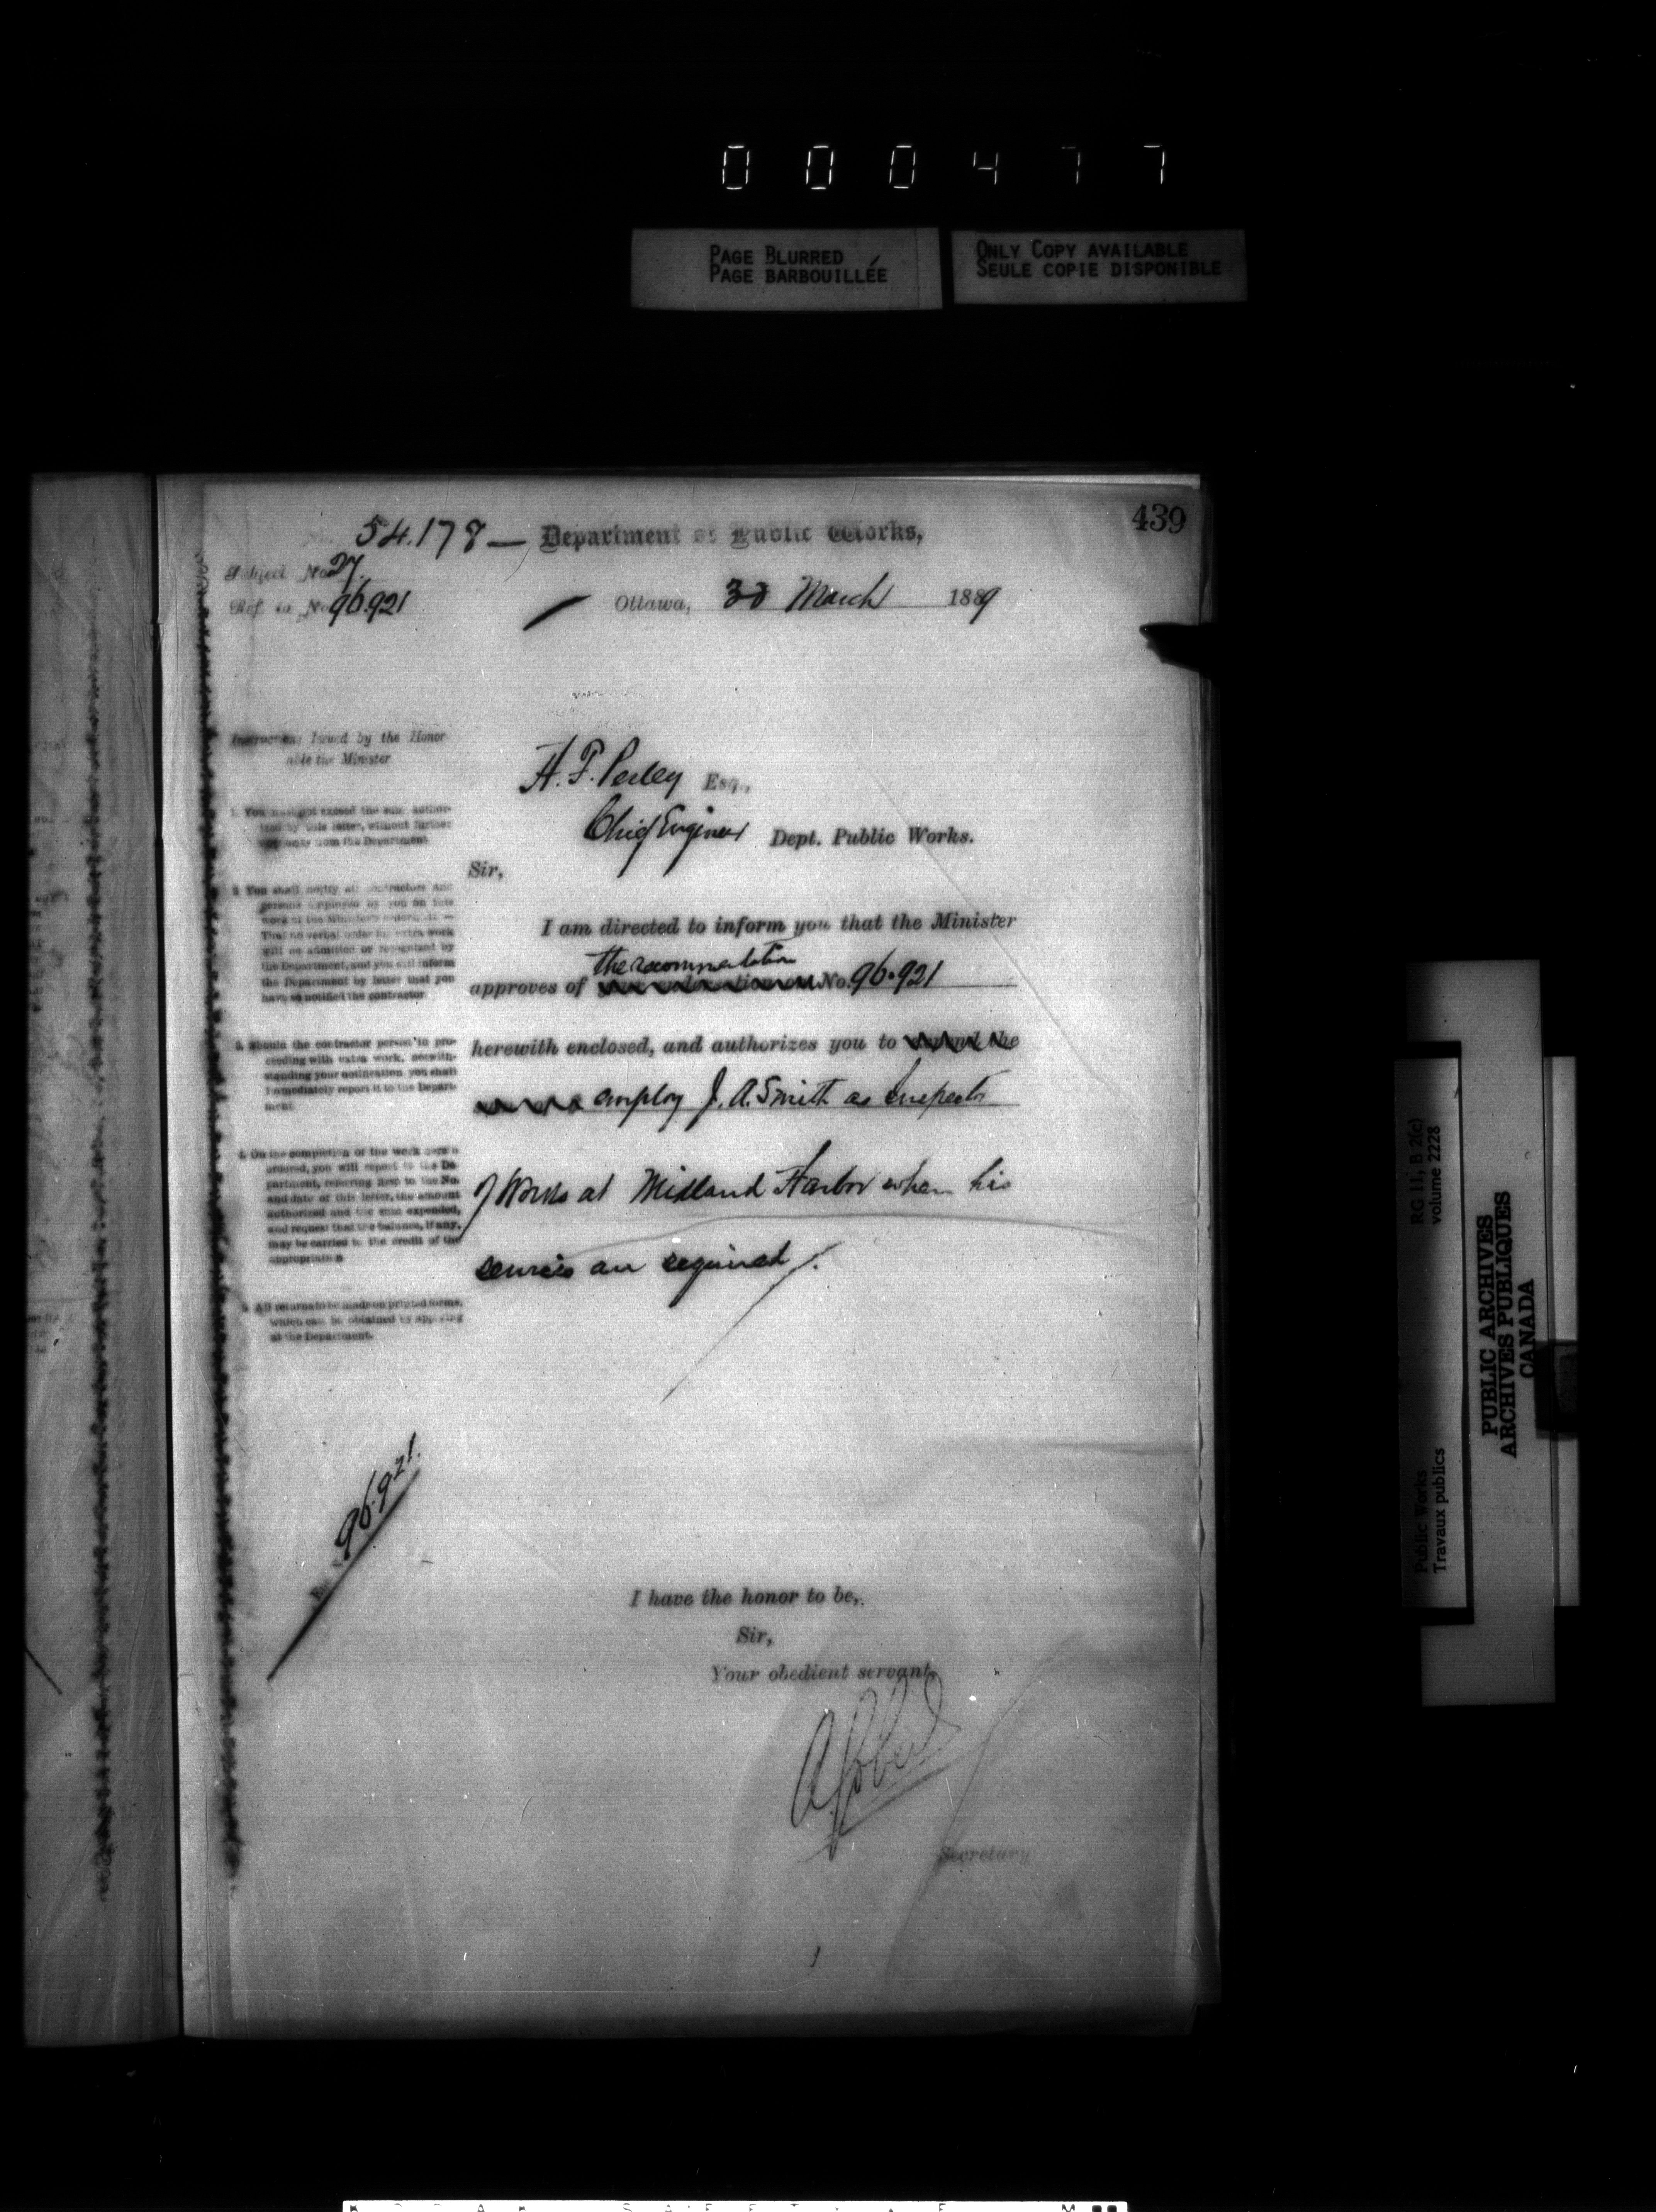 000477
PAGE BLURRED
PAGE BARBOUILLÉE
ONLY COPY AVAILABLE
SEULE COPIE DISPONIBLE
439
54.178 — Department of Public Works,
Subject No. 27.
Ref. to No. 96.921
Ottawa, 30 March 1889
Instructions Issued by the Honor-
able the Minister
1. You must not exceed the sum author-
ized by this letter, without further
authority from the Department.
2. You shall notify all contractors and
persons employed by you on this
work of the Minister's orders, :—
That no verbal order for extra work
will be admitted or recognized by
the Department, and you will inform
the Department by letter that you
have so notified the contractor.
3. Should the contractor persist in pro-
ceeding with extra work, notwith-
standing your notification you shall
immediately report it to the Depart-
ment.
4. On the completion of the work herein
ordered, you will report to the De-
partment, referring first to the No.
and date of this letter, the amount
authorized and the sum expended,
and request that the balance, if any,
may be carried to the credit of the
appropriation
5. All returns to be made on printed forms,
which can be obtained by applying
at the Department.
H. F. Perley Esq.,
Chief Engineer Dept. Public Works.
Sir,
I am directed to inform you that the Minister
the recommendation
approves of No. 96.921
herewith enclosed, and authorizes you to
employ J. A. Smith as Inspector
of Works at Midland Harbor when his
services are required.
96.921.
I have the honor to be,
Sir,
Your obedient servant,
Secretary
RG 11, B 2(c)
volume 2228
Public Works
Travaux publics
PUBLIC ARCHIVES
ARCHIVES PUBLIQUES
CANADA